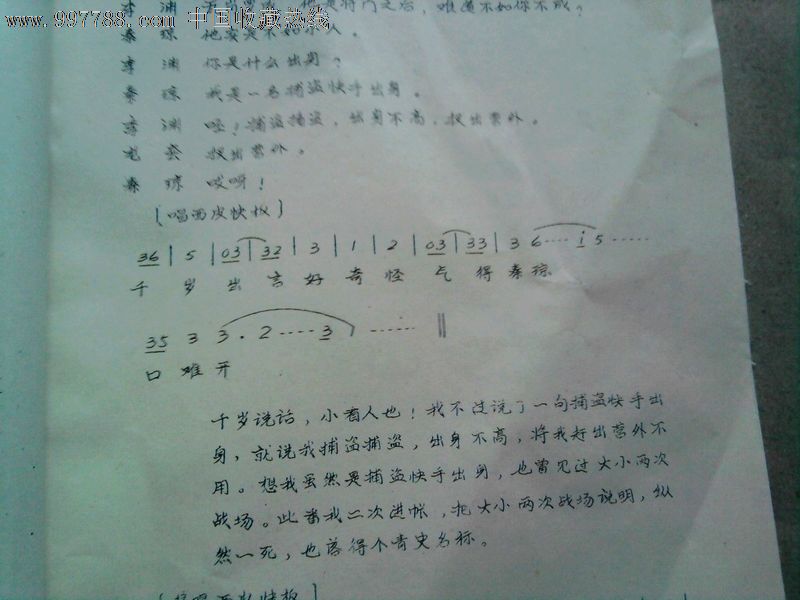 www.997788.com 中国收藏热线
将门之后，难道不如你不成？
秦 琼 他实是不如小人。
李 渊 你是什么出身？
秦 琼 我是一名捕盗快手出身。
李 渊 哇！捕盗捕盗，出身不高，扠出营外。
龙 套 扠出营外。
秦 琼 哎呀！
〔唱西皮快板〕
36 | 5 | 03 | 32 | 3 | 1 | 2 | 03 | 33 | 3 6 ···· i 5 ·····
千 岁 出 言 好 奇 怪 气 得 秦 琼
35 3 3 · 2 ···· 3 ······ ‖
口 难 开
千岁说话，小看人也！我不过说了一句捕盗快手出
身，就说我捕盗捕盗，出身不高，将我赶出营外不
用。想我虽然是捕盗快手出身，也曾见过大小两次
战场。此番我二次进帐，把大小两次战场说明，纵
然一死，也落得个青史名标。